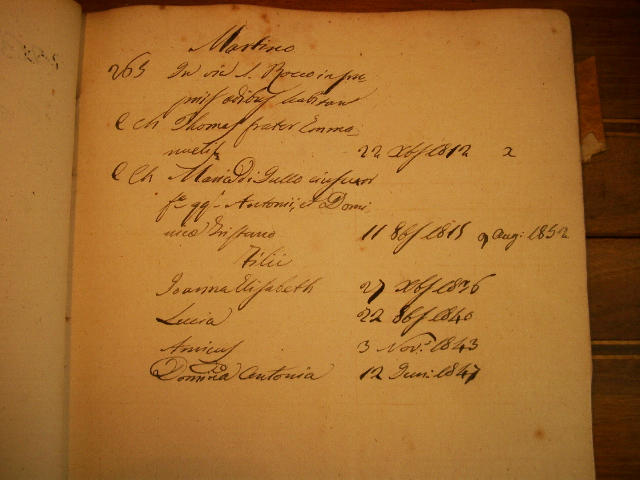 Martino
263 In via S. Rocco in su
prius aedibus habitan
C Ch Thomas frater Emma-
nuelis 22 Xbis 1812 2
C Ch Maria di Gullo eius uxor
fa qq. Antonii, et Domi-
nica Tristano 11 8bis 1815 9 Aug: 1852
Filii
Joanna Elisabeth 27 Xbis 1836
Lucia 22 8bis 1840
Amicus 3 Nov: 1843
Dominica Antonia 12 Jun: 1847